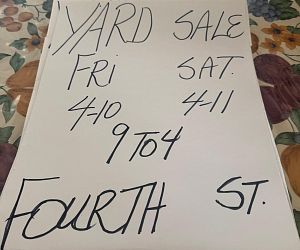 YARD SALE
FRI SAT.
4-10 4-11
9 TO 4
FOURTH ST.